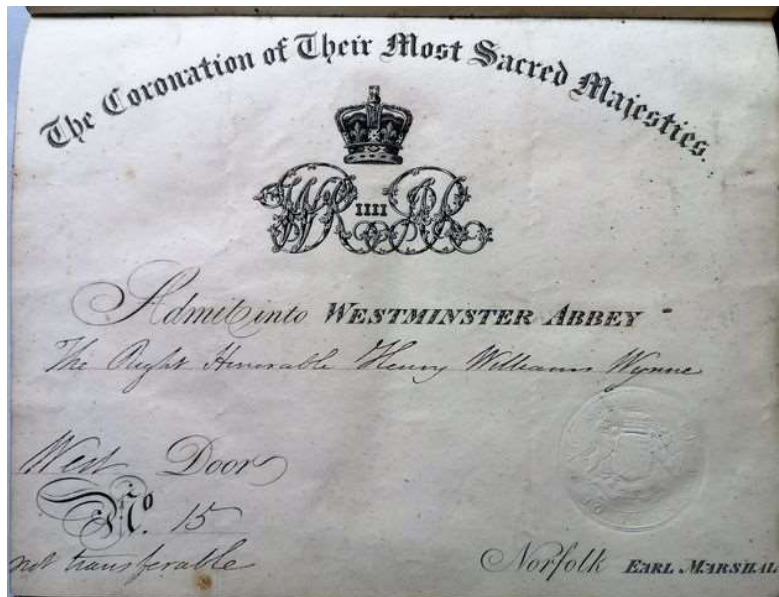 The Coronation of Their Most Sacred Majesties.
WR IIII AR
Admit into WESTMINSTER ABBEY
The Right Honorable Henry Williams Wynne
West Door
No. 15
not transferable
Norfolk EARL MARSHAL